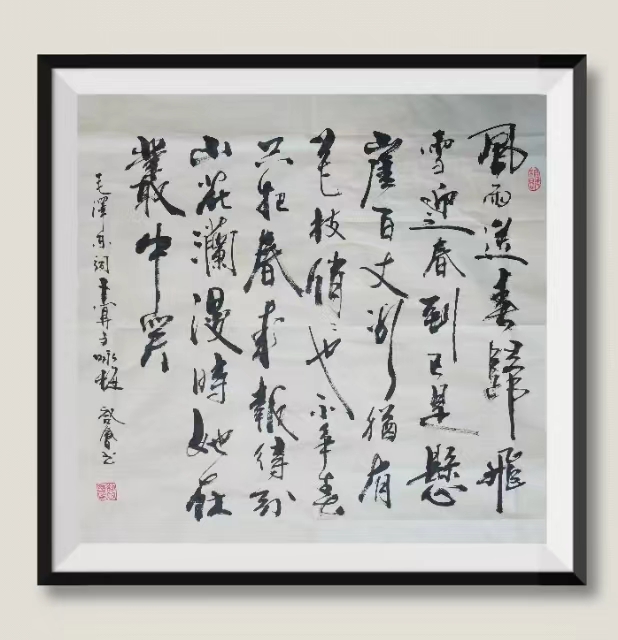 風雨送春歸飛
雪迎春到已是懸
崖百丈冰猶有
花枝俏〻也不争春
只把春來報待到
山花瀾漫時她在
叢中笑
毛澤東詞卜算子咏梅